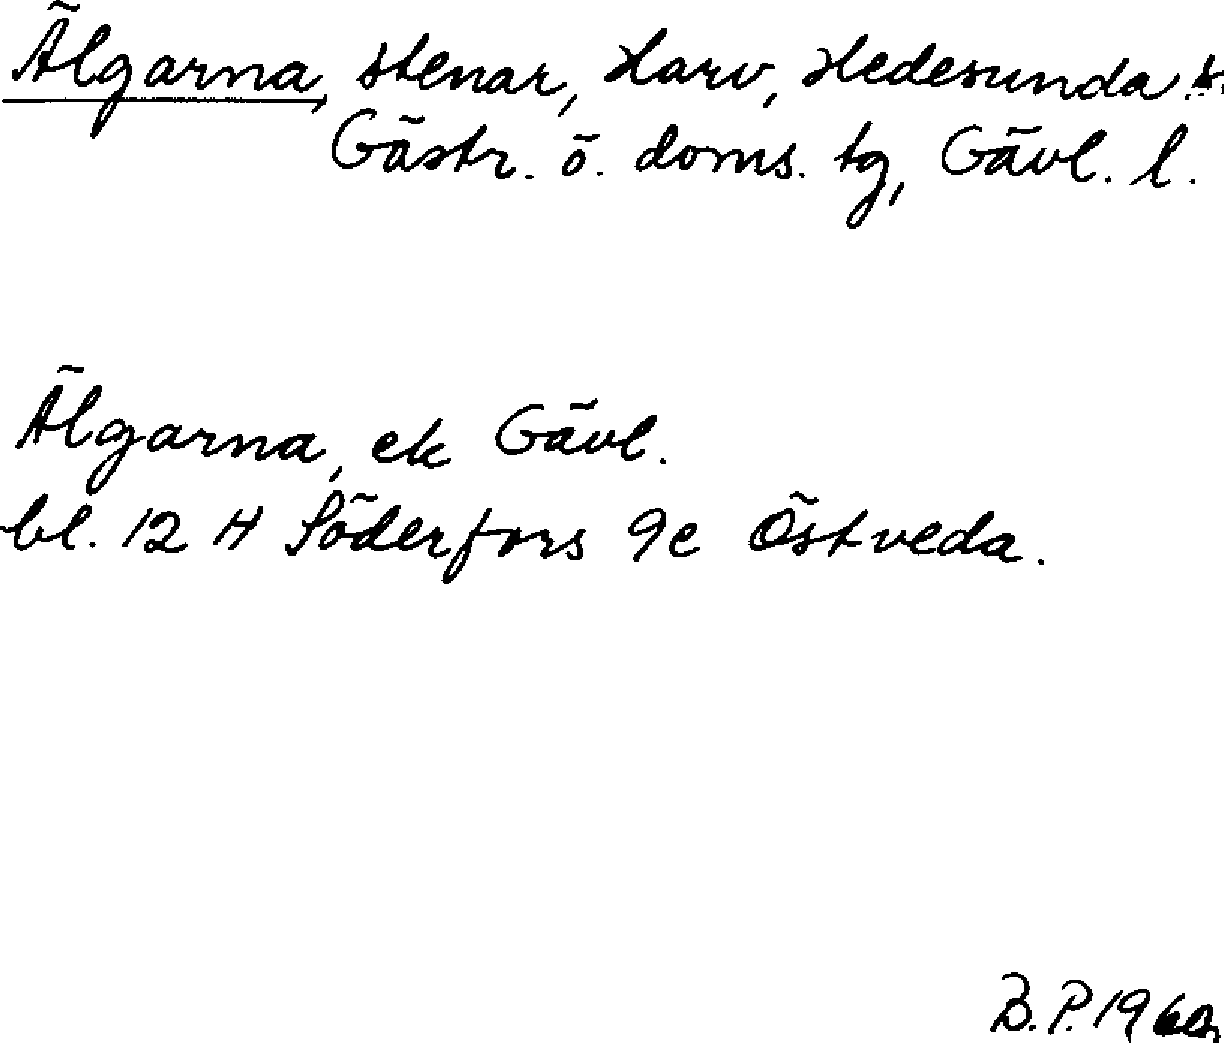 Älgarna, stenar, Harv, Hedesunda s.
Gästr. ö. doms. tg, Gävl. l.
Älgarna, ek Gävl.
bl. 12 H Söderfors 9e Östveda.
B. P. 1960